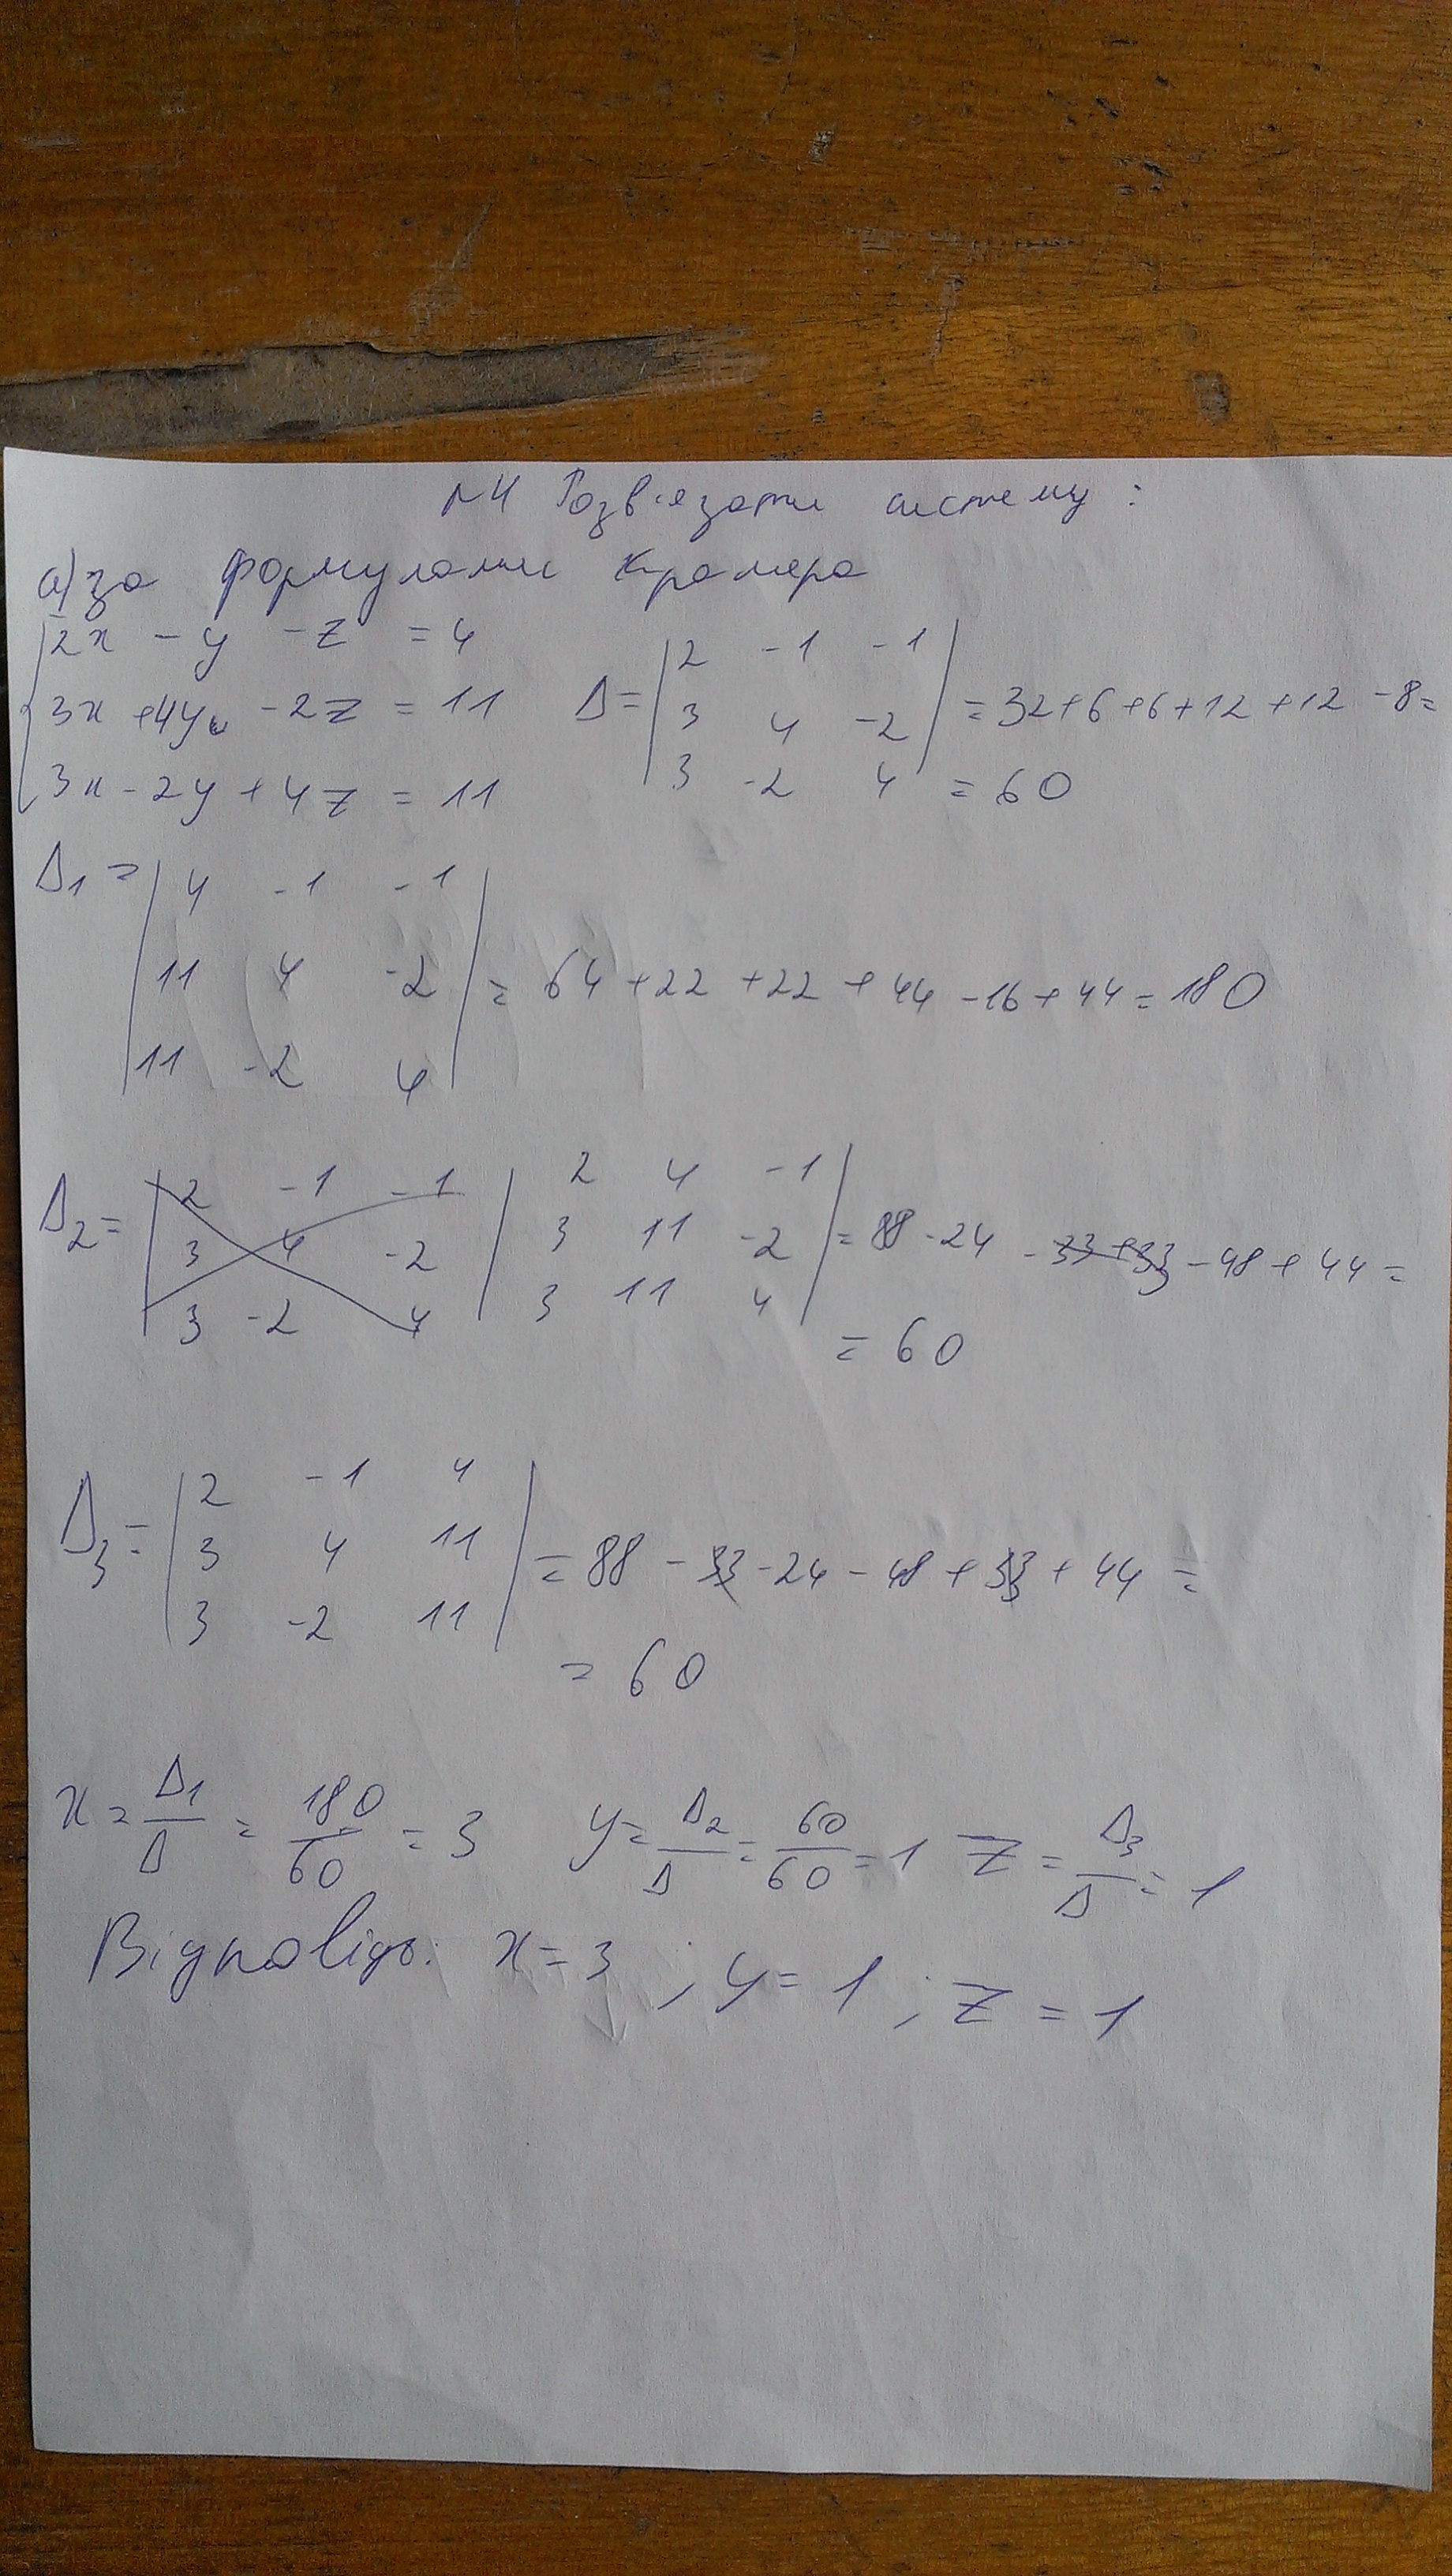 №4 Розв'язати систему:
а) за формулами Крамера
2x - y - z = 4
3x + 4y - 2z = 11
3x - 2y + 4z = 11
Δ = | 2 -1 -1 |
| 3 4 -2 | = 32+6+6+12+12-8=
| 3 -2 4 | = 60
Δ1 = | 4 -1 -1 |
| 11 4 -2 | = 64+22+22+44-16+44=180
| 11 -2 4 |
Δ2 = | 2 -1 -1 | 2 4 -1 |
| 3 4 -2 | 3 11 -2 | = 88-24-33+33-48+44=
| 3 -2 4 | 3 11 4 |
= 60
Δ3 = | 2 -1 4 |
| 3 4 11 | = 88-33-24-48+33+44=
| 3 -2 11 |
= 60
x = Δ1/Δ = 180/60 = 3 y = Δ2/Δ = 60/60 = 1 z = Δ3/Δ = 1
Відповідь: x=3; y=1; z=1